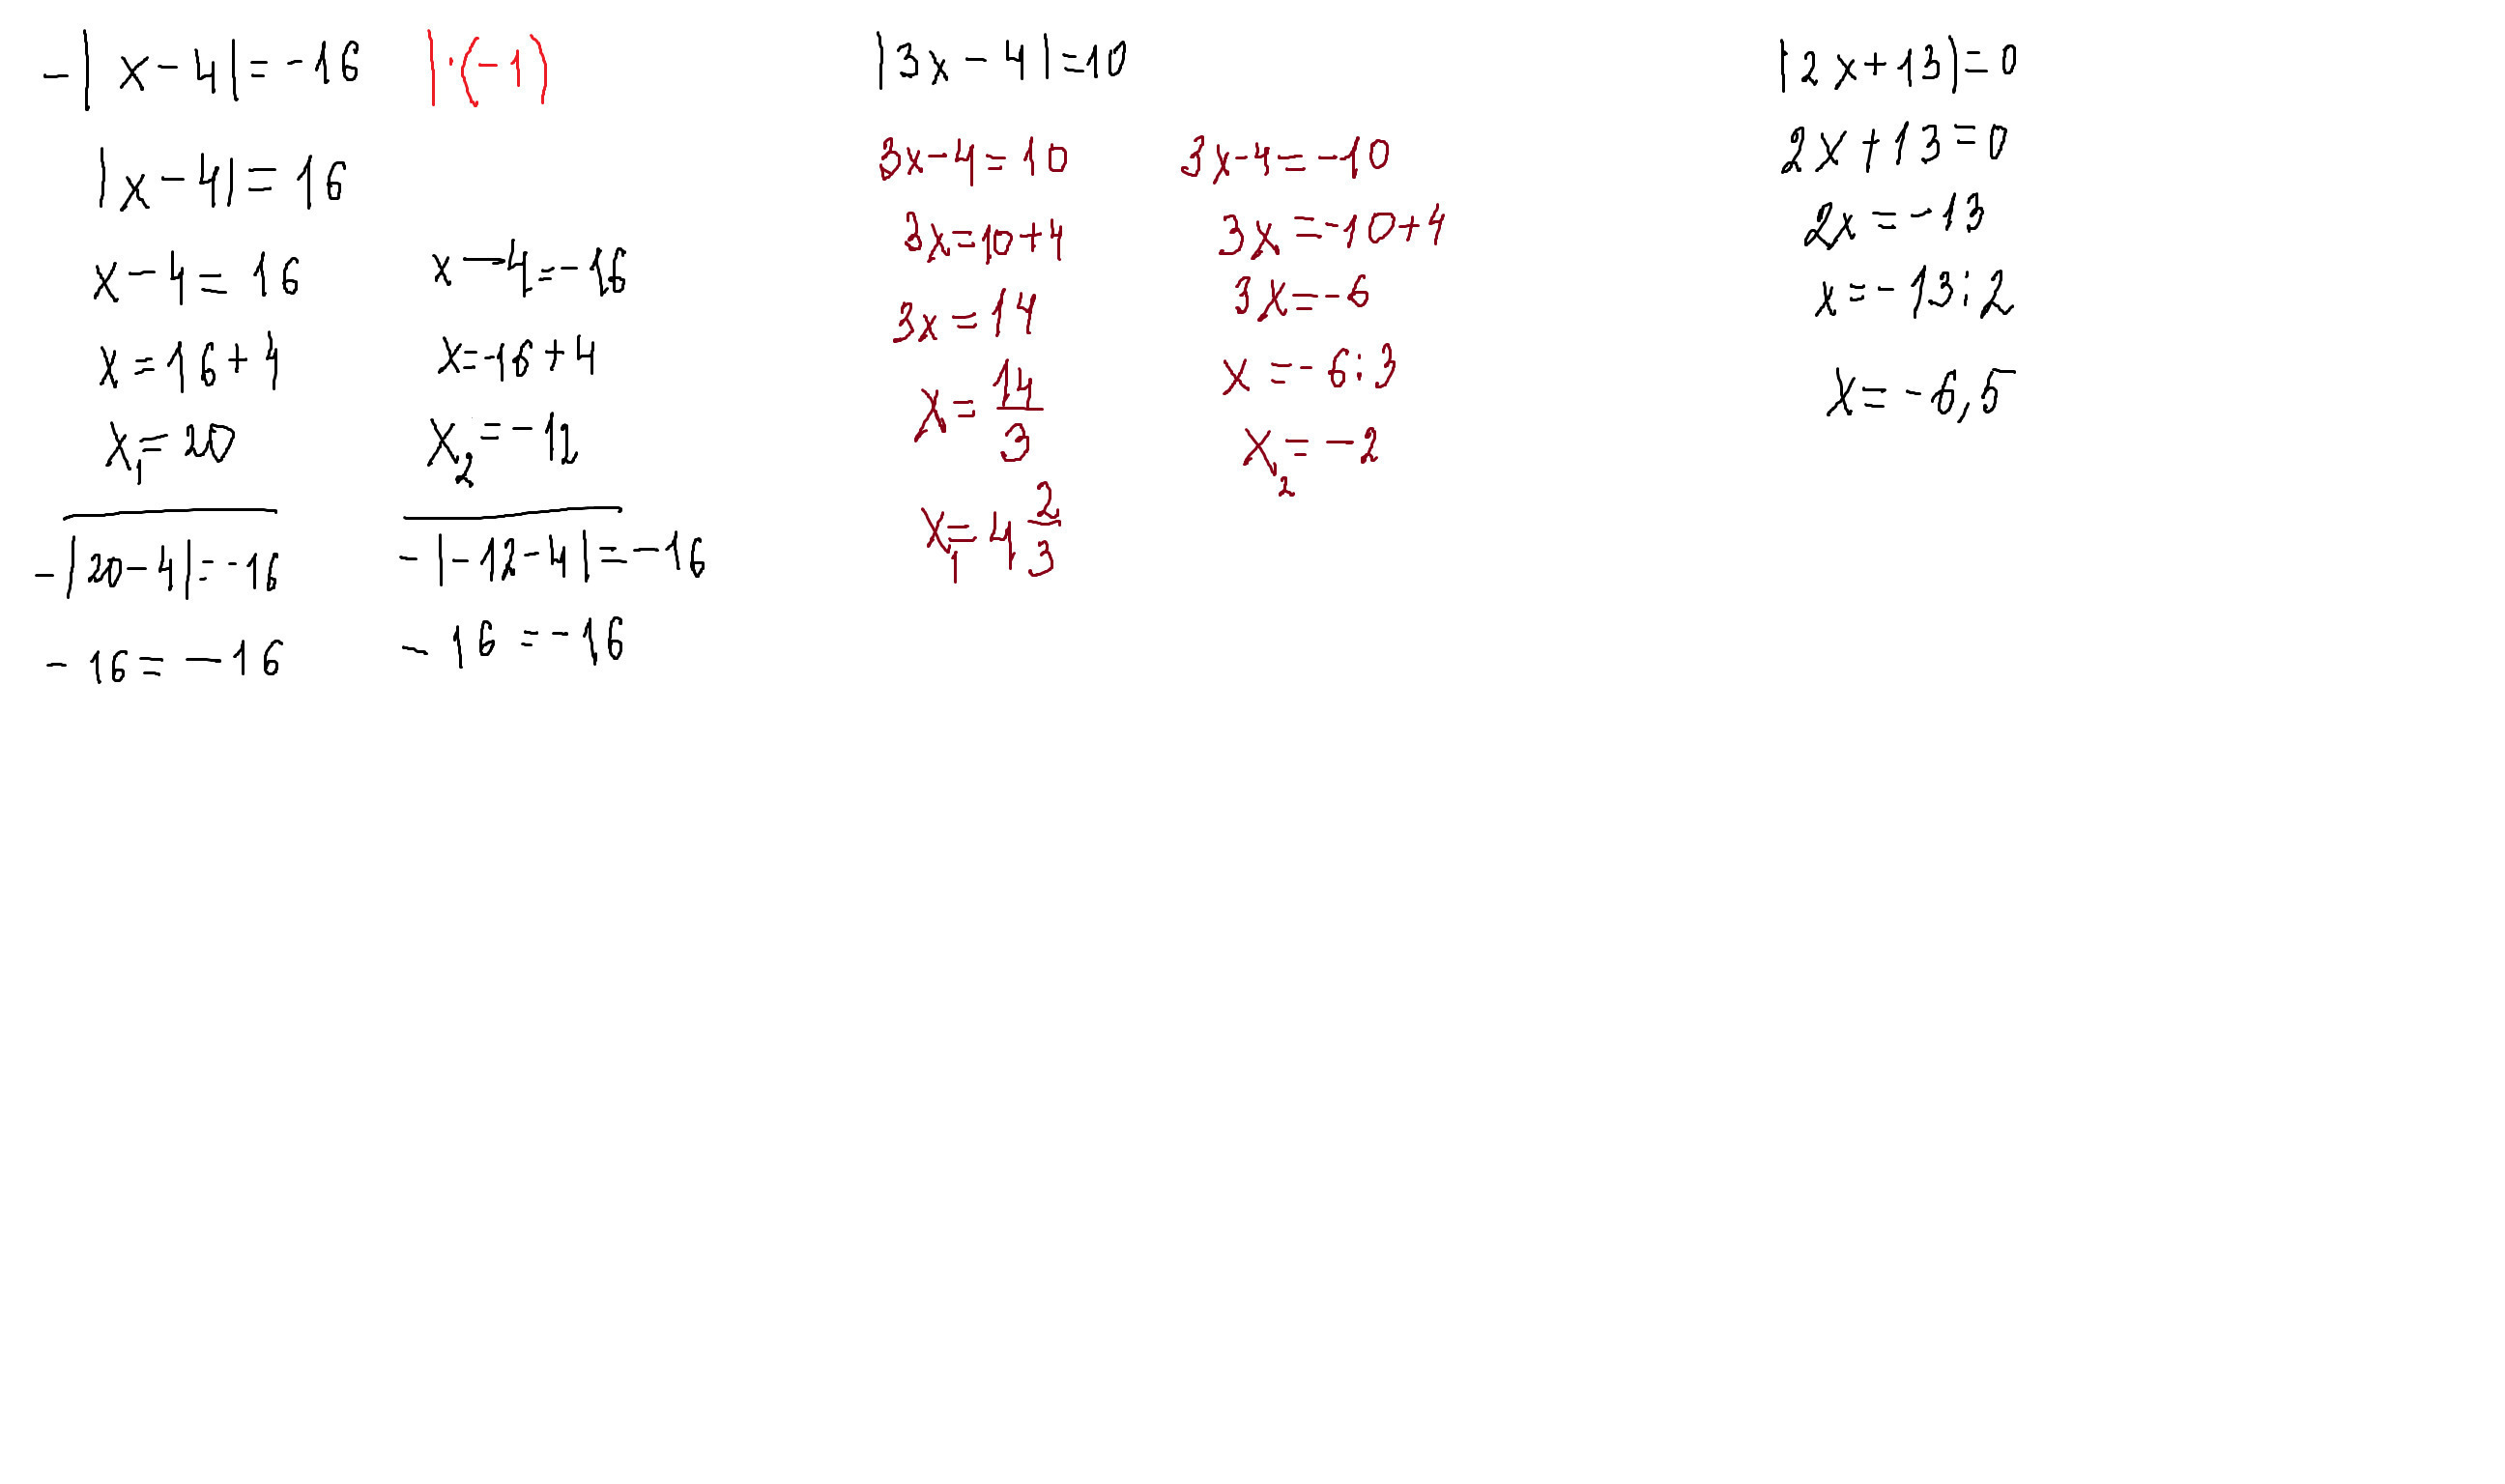 -|x-4|=-16 |·(-1)
|x-4|=16
x-4=16
x=16+4
x₁=20
-|20-4|=-16
-16=-16
x-4=-16
x=-16+4
x₂=-12
-|-12-4|=-16
-16=-16
|3x-4|=10
3x-4=10
3x=10+4
3x=14
x=14/3
x₁=4 2/3
3x-4=-10
3x=-10+4
3x=-6
x=-6:3
x₂=-2
|2x+13|=0
2x+13=0
2x=-13
x=-13:2
x=-6,5